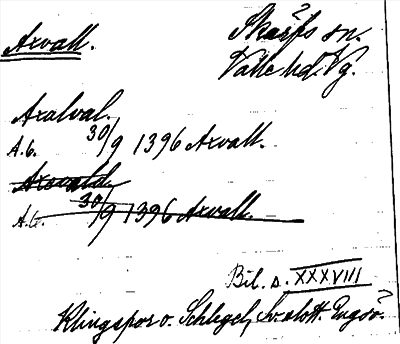 Axvall.
Skärfs sn.
Valle hd. Vg.
Axalval.
A.b. 30/9 1396 Axvall.
Axevald.
A.b. 30/9 1396 Axvall.
Bil. s. XXXVIII
Klingspor o. Schlegel, Sv. slott.